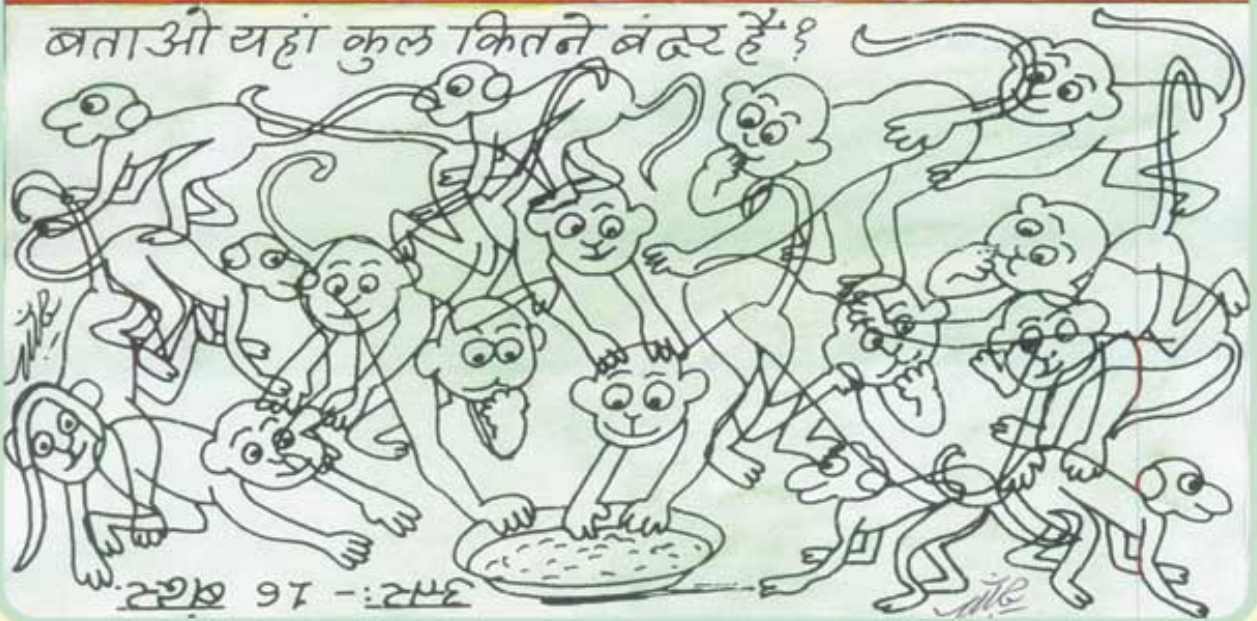 बताओ यहां कुल कितने बंदर हैं?
उत्तर:- 16 बंदर.